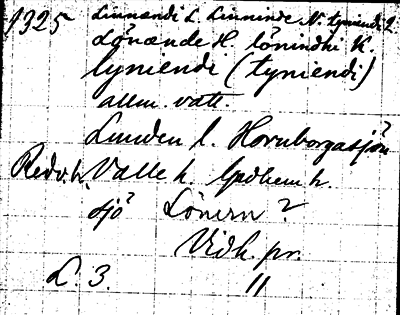 1325 Linnændi L. Linninde N. tyniendi L.
Lönænde H. lönindhi K.
lyniendi (tyniendi)
allm. vatt.
Lunden l. Hornborgasjön
Redv. h. Valle h. Gudhem h.
sjö Lönern?
Vidk. pr.
L. 3. 11